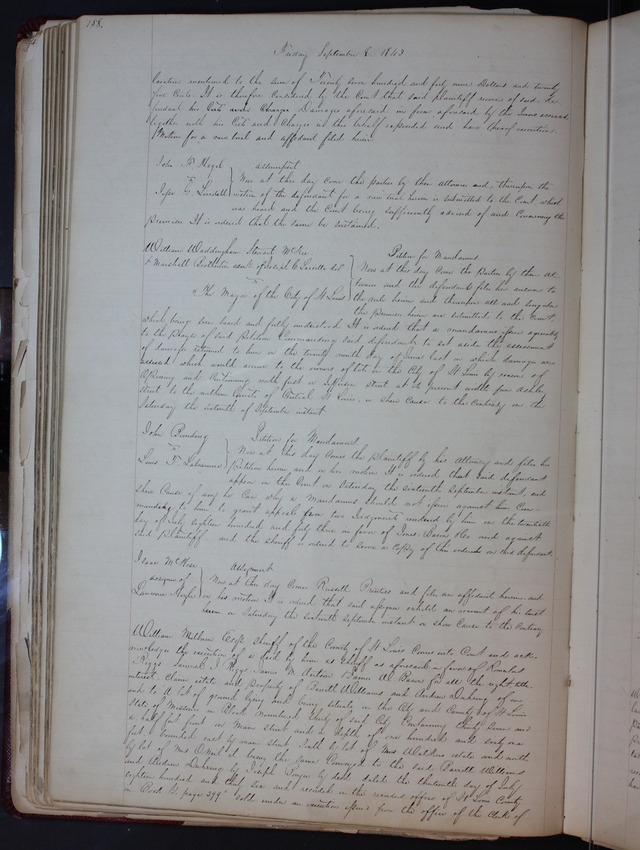 158.
Friday September 8. 1843
location mentioned to the sum of Twenty seven hundred and forty nine Dollars and twenty
five Cents. It is therefore Considered by the Court that said plaintiff recover of said De
fendant his Damages aforesaid in form aforesaid by the Jurors assessed
together with his Costs and Charges in this behalf expended and have thereof execution.
Motion for a new trial and affidavit filed herein
John Assumpsit
vs
Jesse G. Lindell
Now at this day Come the parties by their attornies and thereupon the
motion of the defendant for a new trial herein is submitted to the Court which
was heard and the Court being sufficiently advised of and Concerning the
premises It is ordered that the same be sustained.
William Waddingham Stewart McKee
& Marshall Brotherton
vs
The Mayor of the City of St Louis
Petition for Mandamus
Now at this day Come the Parties by their at
tornies and the defendant files his answer to
the rule herein and thereupon all and singular
the premises herein are submitted to the Court
which being seen heard and fully understood It is ordered that a mandamus issue agreeably
to the Prayer of said Petition Commanding said defendant to set aside the assessment
of damages returned to him on the twenty ninth day of June last in which damages are
assessed which would accrue to the owners of lots in the City of St Louis by reason of
opening and first or street at its present width from Ashley
street to the northern limits of St Louis, or show Cause to the Contrary on
Saturday the sixteenth of September instant
John Bunding
vs
Louis T. Labeaume
Petition for Mandamus
Now at this day Comes the plaintiff by his Attorney and files his
Petition herein, and on his motion It is ordered that said defendant
appear in the Court on Saturday the sixteenth September instant and
show Cause if any he Can why a Mandamus should not issue against him Com
manding to him to grant appeals from two Judgments rendered by him on the twentieth
day of July eighteen hundred and forty three in favor of Jones and against
said Plaintiff and the Sheriff is ordered to serve a Copy of this order on said defendant.
Isaac McKee
assignee of
Lawrence
Assignment
Now at this day Come Russell and files an affidavit herein and
on his motion It is ordered that said assignee exhibit an account of his trust
herein on Saturday the sixteenth September instant or show Cause to the Contrary
William Milburn Esqr Sheriff of the County of St Louis Comes into Court and ack
nowledges the execution of a deed by him as Sheriff as aforesaid in favor of Romulus
Riggs Samuel J. Riggs James W. all the right title
interest Claim estate and property of Barrott Williams and Andrew of in
and to A lot of ground lying and being situate in the City and County of St Louis
State of Missouri in Block Numbered thirty of said City Containing thirty seven and
a half feet front on Main street and a depth of one hundred and sixty
feet bounded east by main street South by lot of Mrs estate and north
by lot of Mrs being the same Conveyed to the said Barrott Williams
and Andrew by Joseph by deed dated the thirteenth day of July
eighteen hundred and thirty six and recorded in the recorders office of St Louis County
in Book page 399. Sold under an execution issued from the office of the Clerk of